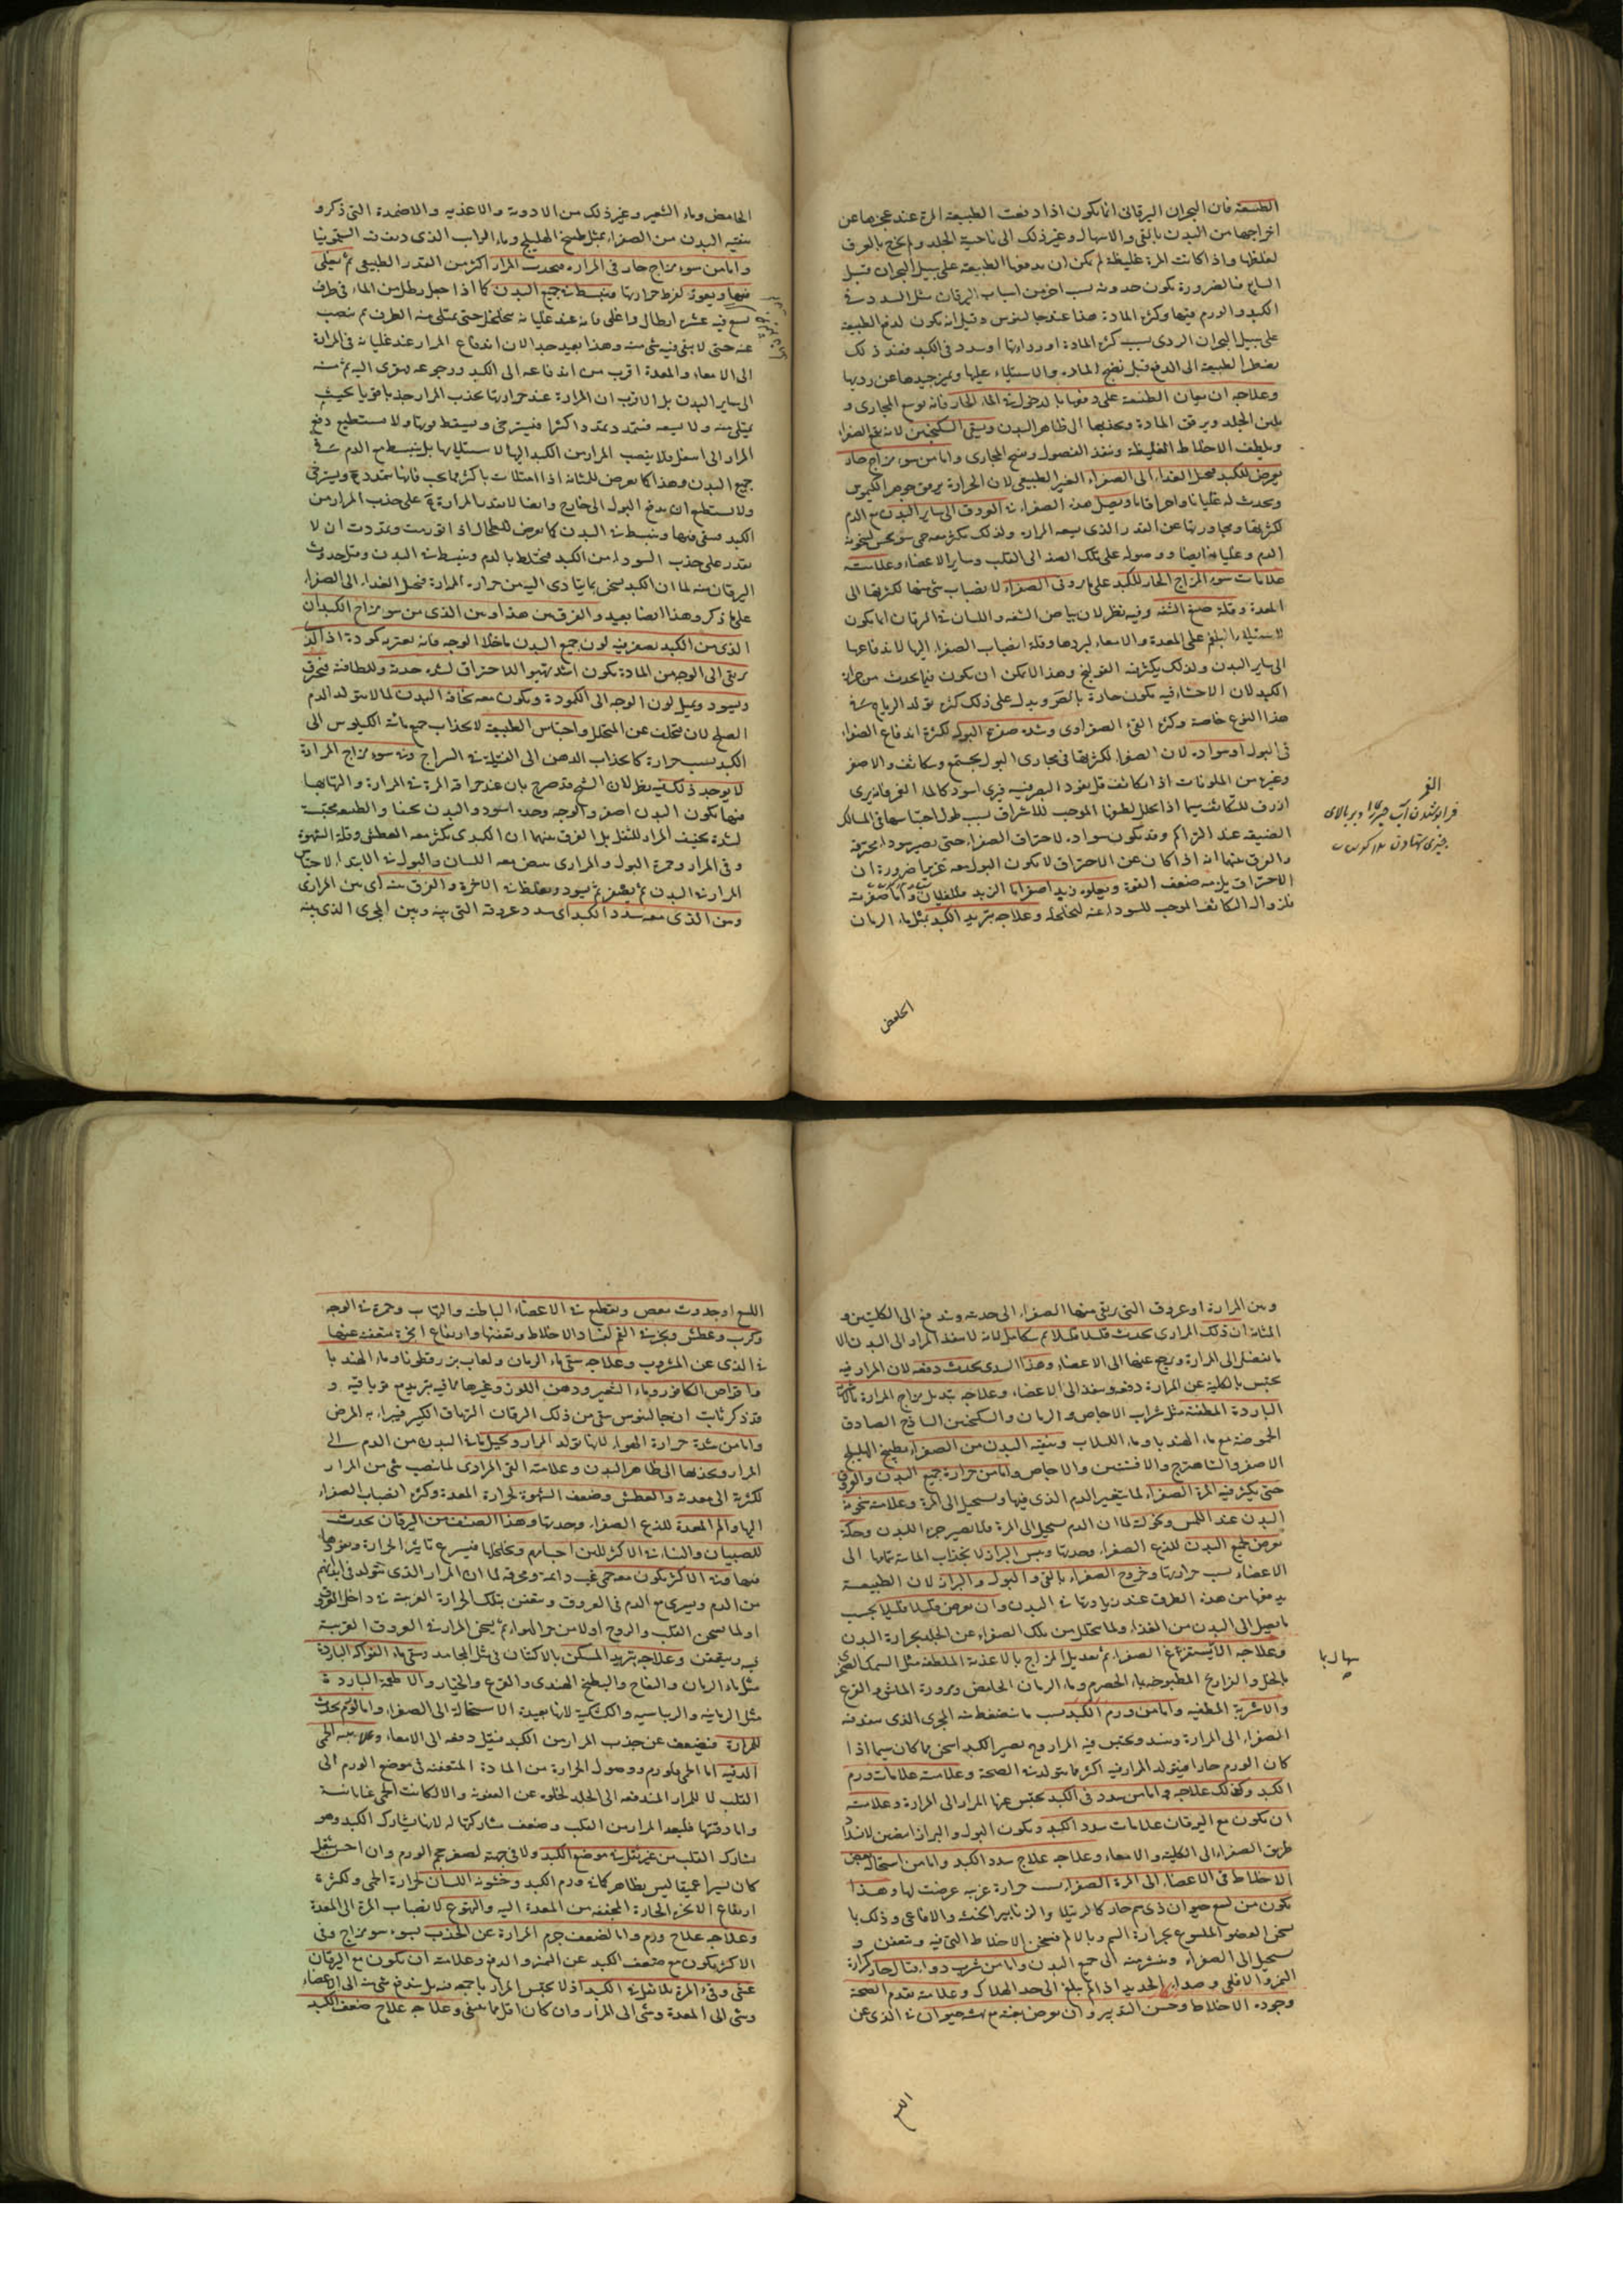 الطبيعة فان البحران اليرقانى انما يكون اذا دفعت الطبيعة المرة عند عجزها عن
اخراجها من البدن بالقى والاسهال وغير ذلك الى ناحية الجلد ولم يخرج بالعرق
لغلظها واذا كانت المرة غليظة لم يكن ان يدفعها الطبيعة على سبيل البحران قبل
السابع فبالضرورة يكون حدوثه بسبب اخر من اسباب اليرقان مثل السدد فى
الكبد والورم فيها وكثرة المادة هذا عند جالينوس وقيل انه يكون لدفع الطبيعة
على سبيل البحران الردى بسبب كثرة المادة او رداءتها او سدد فى الكبد فعند ذلك
يضطر الطبيعة الى الدفع قبل نضج المادة والاستيلاء عليها وتميز جيدها عن رديها
وعلاجه ان يعان الطبيعة على دفعها بالدخول فى الماء الحار فانه يوسع المجارى و
يلين الجلد ويرقق المادة ويجذبها الى ظاهر البدن ويسقى السكنجبين لانه يقطع الصفراء
ويلطف الاخلاط الغليظة وينفذ الفضول ويفتح المجارى واما من سوء مزاج حار
يعرض للكبد فيحيل الغذاء الى الصفراء الغير الطبيعى لان الحرارة يرقق جوهر الكيلوس
ويحدث له غليانا واحراقا ويصل هذه الصفراء فى العروق الى ساير البدن مع الدم
لكثرتها ومجاوزتها عن القدر الذى يسعه المرارة ولذلك يكثر معه حمى سونوخس لسخونة
الدم وغليانه ايضا ووصوله على تلك الصفة الى القلب وساير الاعضاء وعلامته
علامات سوء المزاج الحار للكبد على ما مر وقى الصفراء لانصباب شى منها لكثرتها الى
المعدة وقلة صبغ الشفه وفيه نظر لان بياض الشفه واللسان فى اليرقان انما يكون
لاستيلاء البلغم على المعدة والامعاء لبردها وقلة انصباب الصفراء اليها لاندفاعها
الى ساير البدن ولذلك يكثر فيه القولنج وهذا لا يمكن ان يكون فيما يحدث من حرارة
الكبد لان الاحشاء فيه يكون حارة بالضرورة ويدل على ذلك كثرة تولد الرياح فى
هذا النوع خاصة وكثرة القى الصفراوى وشدة صفرة البول لكثرة اندفاع الصفراء
فى البول او سواده لان الصفراء لكثرتها فى مجارى البول يجتمع ويتكاثف والاصفر
وغيره من الملونات اذا تكاثف قل نفوذ البصر فيه فيرى اسود كالماء الغمر فانه يرى
ازرق للتكاثف سيما اذا تحلل لطيفها الموجب للاشراق بسبب طول احتباسها فى المسالك
الضيقة عند التراكم وقد يكون سواده لاحتراق الصفراء حتى يصير سوداء محترقة
والفرق بينهما انه اذا كان عن الاحتراق لا يكون البول معه غزيرا ضرورة ان
الاحتراق يلزمه ضعف القوة ويعلوه زبد اصفر
فلزوال التكاثف الموجب للسواد عنه لتخلخله وعلاجه تبريد الكبد بمثل ماء الرمان
الغمر
الحامض
الحامض وماء الشعير وغير ذلك من الادوية والاغذية والاضمدة التى ذكر و
تنقية البدن من الصفراء بمثل طبيخ الهليلج وماء الرائب الذى ديف فيه السقمونيا
واما من سوء مزاج حار فى المرارة فيجذب المرار اكثر من القدر الطبيعى ثم يغلى
فيها ويفور لفرط حرارتها فينبسط فى جميع البدن كما اذا جعل رطل من الماء فى ظرف
يسع فيه عشرة ارطال واغلى فانه عند غليانه يتخلخل حتى يمتلى منه الظرف ثم ينصب
عنه حتى لا يبقى فيه شى منه وهذا بعيد جدا لان اندفاع المرار عند غليانه فى المرارة
الى الامعاء والمعدة اقرب من اندفاعه الى الكبد ورجوعه قهقرى اليه ثم منه
الى ساير البدن بل الاقرب ان المرارة عند حرارتها يجذب المرار جذبا قويا بحيث
يمتلى منه ولا يسعه فتمدد تمددا كثيرا فيسترخى ويسقط قوتها ولا يستطيع دفع
المرار الى اسفل ولا ينصب المرار من الكبد اليها لامتلائها بل ينبسط مع الدم فى
جميع البدن وهذا كما يعرض للمثانة اذا امتلات باكثر مما يجب فانها تتمدد ويسترخى
ولا يستطيع ان يدفع البول الى خارج وايضا لا يقدر المرارة على جذب المرار من
الكبد فيبقى فيها وينبسط فى البدن كما يعرض للطحال اذا تورمت وتمددت ان لا
يقدر على جذب السوداء من الكبد فيختلط بالدم وينبسط فى البدن وقيل حدوث
اليرقان منه لما ان الكبد يسخن بما يتادى اليه من حرارة المرارة فيحيل الغذاء الى الصفراء
على ما ذكر وهذا ايضا بعيد والفرق بين هذا وبين الذى من سوء مزاج الكبد ان
الذى من الكبد يصفر فيه لون جميع البدن ما خلا الوجه فانه يعتريه كمودة اذ الذى
يرتقى الى الوجه من المادة يكون اشد تهيوا للاحتراق لشدة حدته ولطافته فيحترق
ويسود ويميل لون الوجه الى الكمودة ويكون معه نحافة البدن لما لا يتولد الدم
الصالح لان يتخلف عن المتحلل واحتباس الطبيعة لانجذاب جميع مائية الكيلوس الى
الكبد بسبب حرارة كانجذاب الدهن الى الفتيلة فى السراج وفى سوء مزاج المرارة
لا يوجد ذلك وفيه نظر لان الشيخ قد صرح بان عند حرافة المرة فى المرارة والتهابها
فيها يكون البدن اصفر والوجه وحده اسود والبدن نحيفا والطبع محتبسة
لشدة تجفيف المرار للثفل بل الفرق بينهما ان الكبدى يكثر معه العطش وقلة الشهوة
وقى المرار وحمرة البول والمرارى يبيض معه اللسان والبول فى الابتداء لاحتباس
المرار فى البدن ثم يصفر ثم يسود ويغلظ فى الاخرة والفرق بينه اى بين المرارى
وبين الذى معه سدد الكبد اى سدد عروقه التى بينه وبين المجرى الذى بينه
وبين المرارة او عروق التى يرتقى منها الصفراء الى حدبته ويندفع الى الكليتين و
المثانة ان ذلك المرارى يحدث قليلا قليلا ثم يتكامل لانه لا ينفذ المرار الى البدن الا
ما يفضل الى المرارة ويرجع عنها الى الاعضاء وهذا السدى يحدث دفعة لان المرار فيه
يحتبس بالكلية عن المرارة دفعة وينفذ الى الاعضاء وعلاجه تبديل مزاج المرارة
الباردة المطفئة مثل شراب الاجاص والرمان والسكنجبين الساذج الصادق
الحموضة مع ماء الهندبا وماء اللبلاب وتنقية البدن من الصفراء بطبيخ الهليلج
الاصفر والشاهترج والافسنتين والاجاص واما من حرارة جميع البدن والعروق
حتى يكثر فيه المرة الصفراء لما يتغير الدم الذى فيها ويستحيل الى المرة وعلامته سخونة
البدن عند اللمس وحكة
تعرض لجميع البدن للذع الصفراء وحدتها ويبس البراز لانجذاب المائية بتمامها الى
الاعضاء بسبب حرارتها وخروج الصفراء بالقى والبول والبراز لان الطبيعة
يدفعها من هذه الطرق عند زيادتها فى البدن وان يعرض قليلا قليلا بحسب
ما يصل الى البدن من الغذاء ولما يتحلل من تلك الصفراء عن الجلد بحرارة البدن
وعلاجه الاستفراغ الصفراء ثم تعديل المزاج بالاغذية الملطفة مثل السمك الصخرى
بالخل والفراريج المطبوخة بماء الحصرم وماء الرمان الحامض ومزورة الماش والقرع
والاشربة المطفية واما من ورم الكبد بسبب ما ينضغط فيه المجرى الذى ينفذ فيه
الصفراء الى المرارة وينسد ويحتبس فيه المرار ثم يصير الكبد اسخن مما كان سيما اذا
كان الورم حارا فيتولد المرار فيه اكثر مما يتولد فى الصحة وعلامته علامات ورم
الكبد وكذلك علاجه واما من سدد فى الكبد يحتبس عنها المرار الى المرارة وعلامته
ان يكون مع اليرقان علامات سدد الكبد ويكون البول والبراز ابيضين لانسداد
طريق الصفراء الى الكلية والامعاء وعلاجه علاج سدد الكبد واما من استحالة بعض
الاخلاط فى الاعضاء الى المرة الصفراء بسبب حرارة غريبة عرضت لها وهذا
يكون من لسع حيوان ذى سم حار كالرتيلا والزنابير الخبيثة والافاعى وذلك بان
يسخن العضو الملسوع بحرارة السم وبالالم فيسخن الاخلاط التى فيه وتتعفن و
يستحيل الى الصفراء وينتشر منه الى جميع البدن واما من شرب دواء قتال حار كمرارة
النمر والافعى وصداء الحديد اذا لم يبلغ الى حد الهلاك وعلامته تقدم الصحة
وجودة الاخلاط وحسن التدبير وان يعرض بغتة مع نهشة حيوان فى الذى عن
اللسع
اللسع او حدوث مغص وتقطيع فى الاعضاء الباطنة والتهاب وحمرة فى الوجه
وكرب وعطش وبخر فى الفم لفساد الاخلاط وتعفنها وارتفاع ابخرة متعفنة عنها
فى الذى عن المشروب وعلاجه سقى ماء الرمان ولعاب بزر قطونا وماء الهندبا
واقراص الكافور وماء الشعير ودهن اللوز وغيرها مما فيه تبريد مع ترياقية و
قد ذكر ثابت ان جالينوس سقى من ذلك اليرقان الترياق الكبير فبراء به المرض
واما من شدة حرارة الهواء لانها تولد المرار وتحيل ما فى البدن من الدم الى
المرار ويجذبها الى ظاهر البدن وعلامته القى المرارى لما ينصب شى من المرار
لكثرته الى معدته والعطش وضعف الشهوة لحرارة المعدة وكثرة انصباب الصفراء
اليها والم المعدة للذع الصفراء وحدتها وهذا الصنف من اليرقان يحدث
للصبيان والنساء فى الاكثر للين اجسامهم وتخلخلها فيسرع تاثير الحرارة ونفوذها
فيها وفى الاكثر يكون معه حمى غب دائمة ومحرقة لما ان المرار الذى يتولد فى ابدانهم
من الدم ويسرى مع الدم فى العروق ويتعفن بتلك الحرارة الغريبة فى داخل العروق
او لما يسخن القلب والروح اولا من حر الهواء ثم يسخن المرار فى العروق القريبة
فيه ويتعفن وعلاجه تبريد المسكن بالاكتنان فى مثل الجامد وسقى ماء الفواكه الباردة
مثل ماء الرمان والتفاح والبطيخ الهندى والقرع والخيار والاطعمة الباردة
مثل الرمانية والريباسية والكشكية لانها بعيدة الاستحالة الى الصفراء واما لورم يحدث
للمرارة فيضعف عن جذب المرار من الكبد فيقل دفعه الى الامعاء وعلامته الحمى
الدقية اما الحمى فلورم ووصول الحرارة من المادة المتعفنة فى موضع الورم الى
القلب لا للمرار المندفعة الى الجلد لخلوه عن العفونة والا لكانت الحمى غبا دائمة
واما دقتها فلبعد المرار من القلب وضعف مشاركتها له لانها يشارك الكبد وهو
يشارك القلب من غير ثقل فى موضع الكبد ولا فى جنبه لصغر حجم الورم وان احس بثقل
كان يسيرا عميقا ليس بظاهر كما فى ورم الكبد وخشونة اللسان لحرارة الحمى ولكثرة
ارتفاع الابخرة الحارة المجففة من المعدة اليه والتهوع لانصباب المرة الى المعدة
وعلاجه علاج ورم واما لضعف جرم المرارة عن الجذب لسوء مزاج وفى
الاكثر يكون مع ضعف الكبد عن التميز والدفع وعلامته ان يكون مع اليرقان
غثى وقىء المرة بلا ثقل فى الكبد اذ لا يحتبس المرار باجمعه فيه بل يندفع شى منه الى الاعضاء
وشى الى المعدة وشى الى المرار وان كان اقل مما ينبغى وعلاجه علاج ضعف الكبد